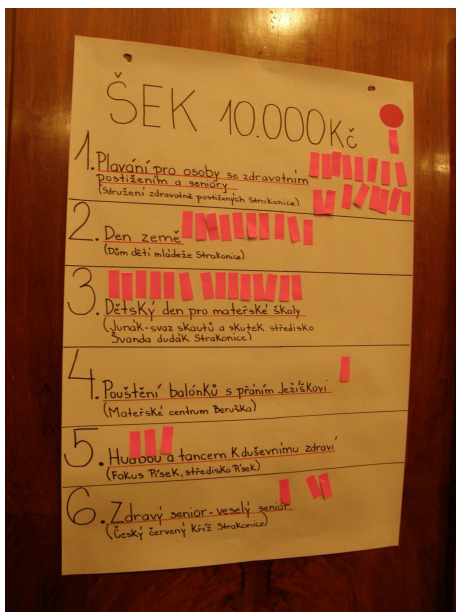 ŠEK 10.000Kč
1. Plavání pro osoby se zdravotním
postižením a seniory
(Sdružení zdravotně postižených Strakonice)
2. Den země
(Dům dětí mládeže Strakonice)
3. Dětský den pro mateřské školy
(Junák-svaz skautů a skutek středisko
Švanda dudák Strakonice)
4. Pouštění balónků s přáním Ježíškovi
(Mateřské centrum Beruška)
5. Hudbou a tancem k duševnímu zdraví
(Fokus Písek, středisko Písek)
6. Zdravý senior-veselý senior
(Český červený kříž Strakonice)